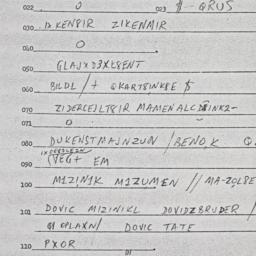 022 0 023 $ - QRUS
030 IX KENBIR ZIKENMIR
0
050 GLAJXD3XLBENT
060 BILDL / + QKARTBINKBE $
070 ZIDERLEJLTBIR MAMENALCDBINK2-
071 0
080 DUKENSTMAJNZUN / BENO,K Q
090 (VEGT EM
100 M1ZIN1K M1ZUMEN // MA-ZOLBE
101 DOVIC MIZINIKL DOVIDZBRUDER /
OPLAXN / DOVIC TATE
110 PXOR